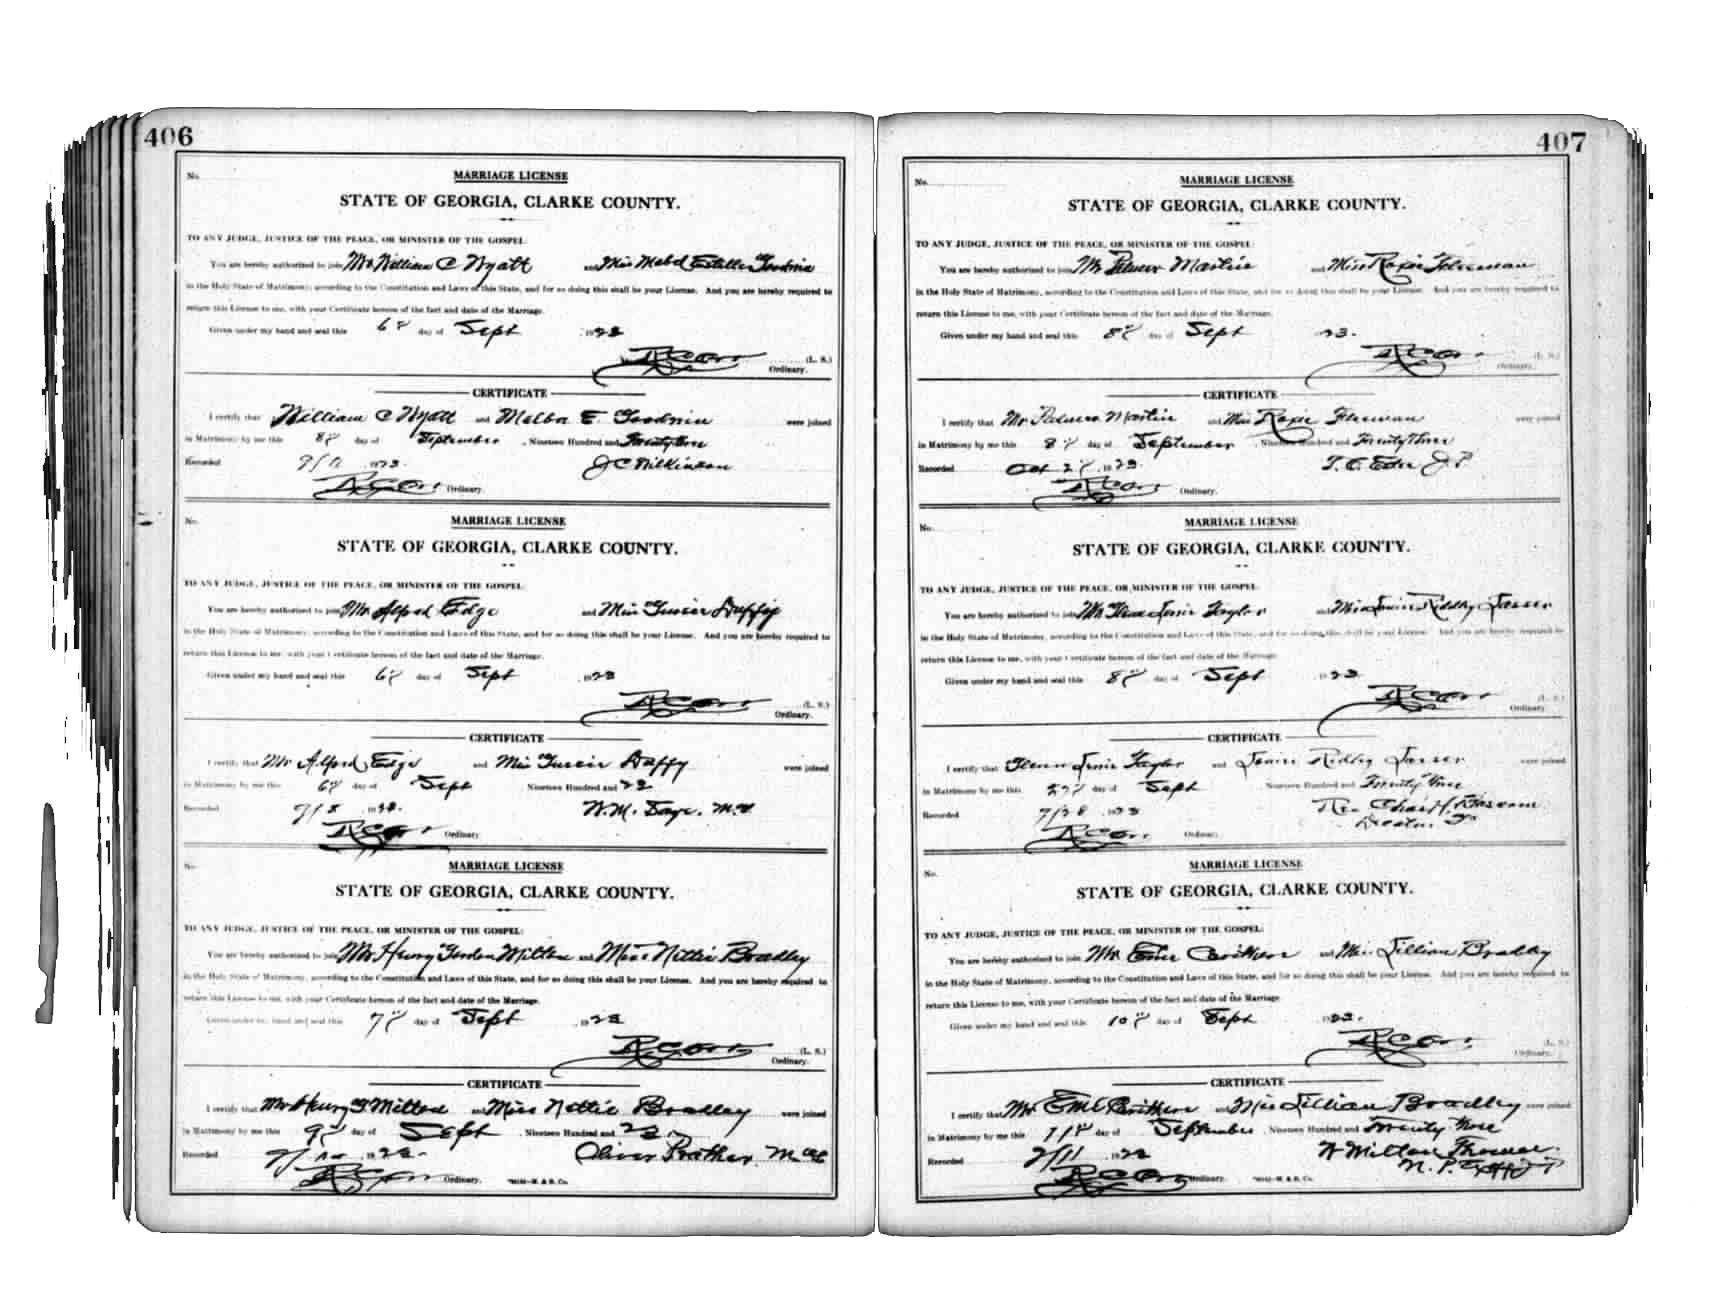 406
No.
MARRIAGE LICENSE
STATE OF GEORGIA, CLARKE COUNTY.
TO ANY JUDGE, JUSTICE OF THE PEACE, OR MINISTER OF THE GOSPEL:
You are hereby authorized to join Mr. William C Wyatt and Miss Mabel Estelle Goodwin
in the Holy State of Matrimony, according to the Constitution and Laws of this State, and for so doing this shall be your License. And you are hereby required to
return this License to me, with your Certificate hereon of the fact and date of the Marriage.
Given under my hand and seal this 6th day of Sept 1923
(L. S.)
Ordinary.
CERTIFICATE
I certify that William C Wyatt and Melba E. Goodwin were joined
in Matrimony by me this 8th day of September, Nineteen Hundred and
Recorded 1923. J C Wilkinson
Ordinary.
No.
MARRIAGE LICENSE
STATE OF GEORGIA, CLARKE COUNTY.
TO ANY JUDGE, JUSTICE OF THE PEACE, OR MINISTER OF THE GOSPEL:
You are hereby authorized to join Mr. Alford Edge and Miss Duffy
in the Holy State of Matrimony, according to the Constitution and Laws of this State, and for so doing this shall be your License. And you are hereby required to
return this License to me, with your Certificate hereon of the fact and date of the Marriage.
Given under my hand and seal this 6th day of Sept 1923
(L. S.)
Ordinary.
CERTIFICATE
I certify that Mr Alford Edge and Miss Duffy were joined
in Matrimony by me this 6th day of Sept Nineteen Hundred and 23
Recorded 9/8 1923. W. M.
Ordinary.
No.
MARRIAGE LICENSE
STATE OF GEORGIA, CLARKE COUNTY.
TO ANY JUDGE, JUSTICE OF THE PEACE, OR MINISTER OF THE GOSPEL:
You are hereby authorized to join Mr. Henry Gordon and Miss Nettie Bradley
in the Holy State of Matrimony, according to the Constitution and Laws of this State, and for so doing this shall be your License. And you are hereby required to
return this License to me, with your Certificate hereon of the fact and date of the Marriage.
Given under my hand and seal this 7th day of Sept 1923
(L. S.)
Ordinary.
CERTIFICATE
I certify that Mr Henry G and Miss Nettie Bradley were joined
in Matrimony by me this 9th day of Sept, Nineteen Hundred and 23
Recorded 9/10 1923. Oliver Prather
Ordinary.
407
No.
MARRIAGE LICENSE
STATE OF GEORGIA, CLARKE COUNTY.
TO ANY JUDGE, JUSTICE OF THE PEACE, OR MINISTER OF THE GOSPEL:
You are hereby authorized to join Mr Martin and Miss Roxie
in the Holy State of Matrimony, according to the Constitution and Laws of this State, and for so doing this shall be your License. And you are hereby required to
return this License to me, with your Certificate hereon of the fact and date of the Marriage.
Given under my hand and seal this 8th day of Sept 23.
(L. S.)
Ordinary.
CERTIFICATE
I certify that Mr. Martin and Miss Roxie were joined
in Matrimony by me this 8th day of September, Nineteen Hundred and Twenty three
Recorded Oct 1923. J P
Ordinary.
No.
MARRIAGE LICENSE
STATE OF GEORGIA, CLARKE COUNTY.
TO ANY JUDGE, JUSTICE OF THE PEACE, OR MINISTER OF THE GOSPEL:
You are hereby authorized to join Mr. Taylor and Miss Ridley
in the Holy State of Matrimony, according to the Constitution and Laws of this State, and for so doing this shall be your License. And you are hereby required to
return this License to me, with your Certificate hereon of the fact and date of the Marriage.
Given under my hand and seal this 8th day of Sept 1923.
(L. S.)
Ordinary.
CERTIFICATE
I certify that Taylor and Ridley were joined
in Matrimony by me this day of Sept Nineteen Hundred and Twenty three
Recorded 9/28 1923 Rev. Chas. H.
Ordinary.
No.
MARRIAGE LICENSE
STATE OF GEORGIA, CLARKE COUNTY.
TO ANY JUDGE, JUSTICE OF THE PEACE, OR MINISTER OF THE GOSPEL:
You are hereby authorized to join Mr. and Miss Lillian Bradley
in the Holy State of Matrimony, according to the Constitution and Laws of this State, and for so doing this shall be your License. And you are hereby required to
return this License to me, with your Certificate hereon of the fact and date of the Marriage.
Given under my hand and seal this 10th day of Sept 1923.
(L. S.)
Ordinary.
CERTIFICATE
I certify that Mr. and Miss Lillian Bradley were joined
in Matrimony by me this day of September, Nineteen Hundred and Twenty three
Recorded 9/11 1923 W Milton Thomas
N. P.
Ordinary.